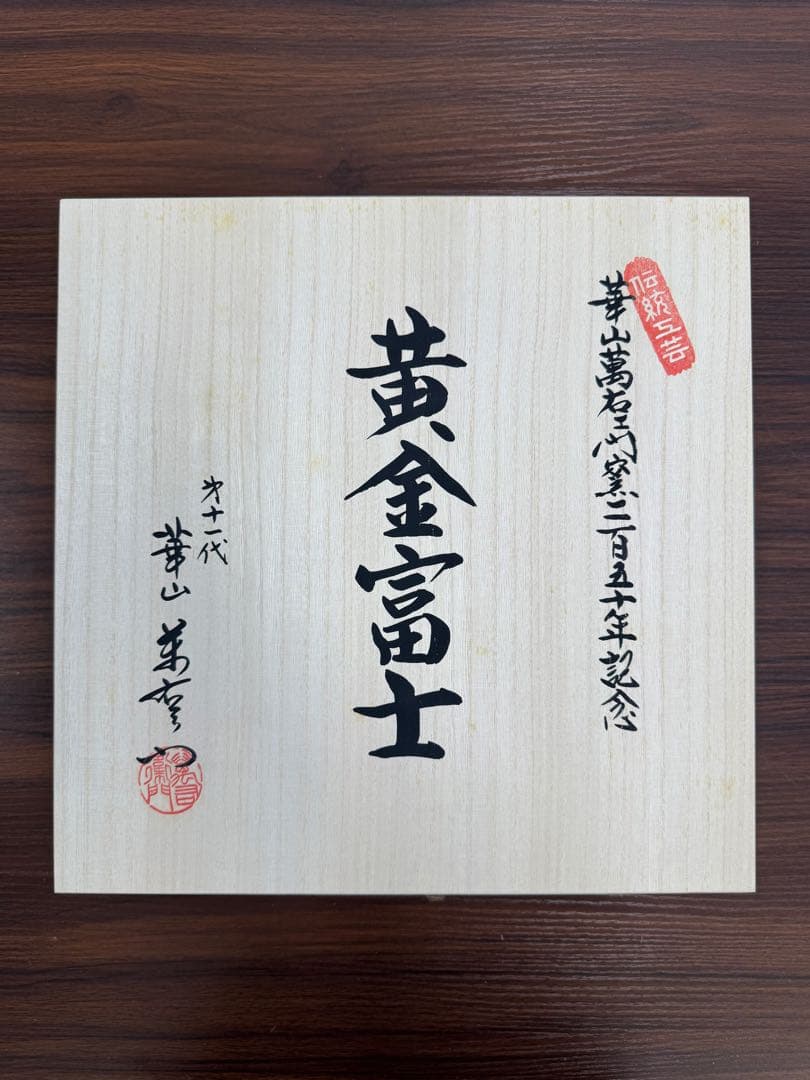 伝統工芸
華山萬右エ門窯二百五十年記念
黄金富士
第十一代
華山萬右エ門